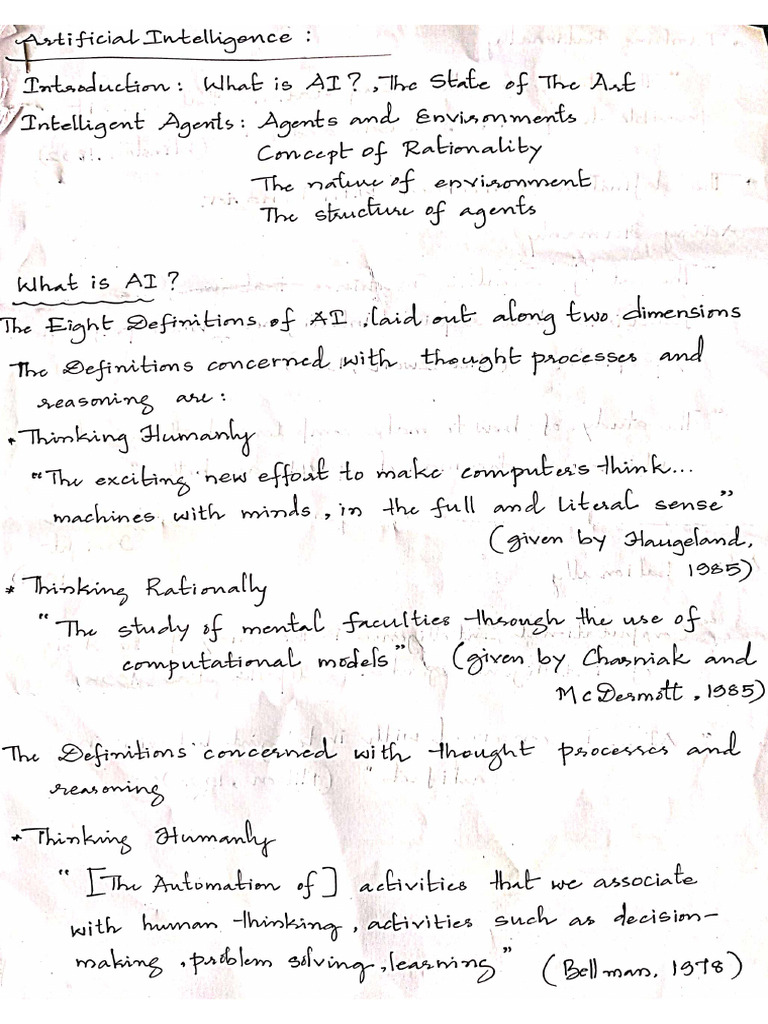 Artificial Intelligence :
Introduction : What is AI ? , The State of The Art
Intelligent Agents : Agents and Environments
Concept of Rationality
The nature of environment
The structure of agents
What is AI ?
The Eight Definitions of AI , laid out along two dimensions
The Definitions concerned with thought processes and
reasoning are :
* Thinking Humanly
"The exciting new effort to make computers think...
machines with minds , in the full and literal sense"
(given by Haugeland,
1985)
* Thinking Rationally
"The study of mental faculties through the use of
computational models" (given by Charniak and
McDermott , 1985)
The Definitions concerned with thought processes and
reasoning
* Thinking Humanly
"[The Automation of] activities that we associate
with human thinking , activities such as decision-
making , problem solving , learning" (Bellman, 1978)